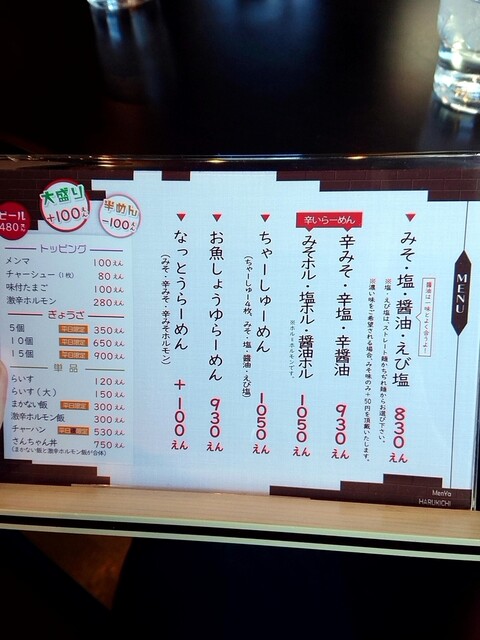 MENU
醤油は一味とよく合うよ!
みそ・塩・醤油・えび塩
830えん
※塩・えび塩は、ストレート麺かちぢれ麺からお選び下さい。
※濃い味をご希望される場合、みそ味のみ+50円を頂戴いたします。
辛いらーめん
辛みそ・辛塩・辛醤油
930えん
みそホル・塩ホル・醤油ホル
1050えん
※ホル=ホルモンです。
ちゃーしゅーめん
(ちゃーしゅー4枚、みそ・塩・醤油・えび塩)
1050えん
お魚しょうゆらーめん
930えん
なっとうらーめん
(みそ・辛みそ・辛みそホルモン)
+100えん
ビール
480えん
大盛り
+100えん
半めん
-100えん
トッピング
メンマ 100えん
チャーシュー(1枚) 80えん
味付たまご 100えん
激辛ホルモン 280えん
ぎょうざ
5個 平日限定 350えん
10個 平日限定 650えん
15個 平日限定 900えん
単品
らいす 120えん
らいす(大) 150えん
まかない飯 平日限定 300えん
激辛ホルモン飯 300えん
チャーハン 530えん
さんちゃん丼 750えん
(まかない飯と激辛ホルモン飯が合体)
MenYa
HARUKICHI